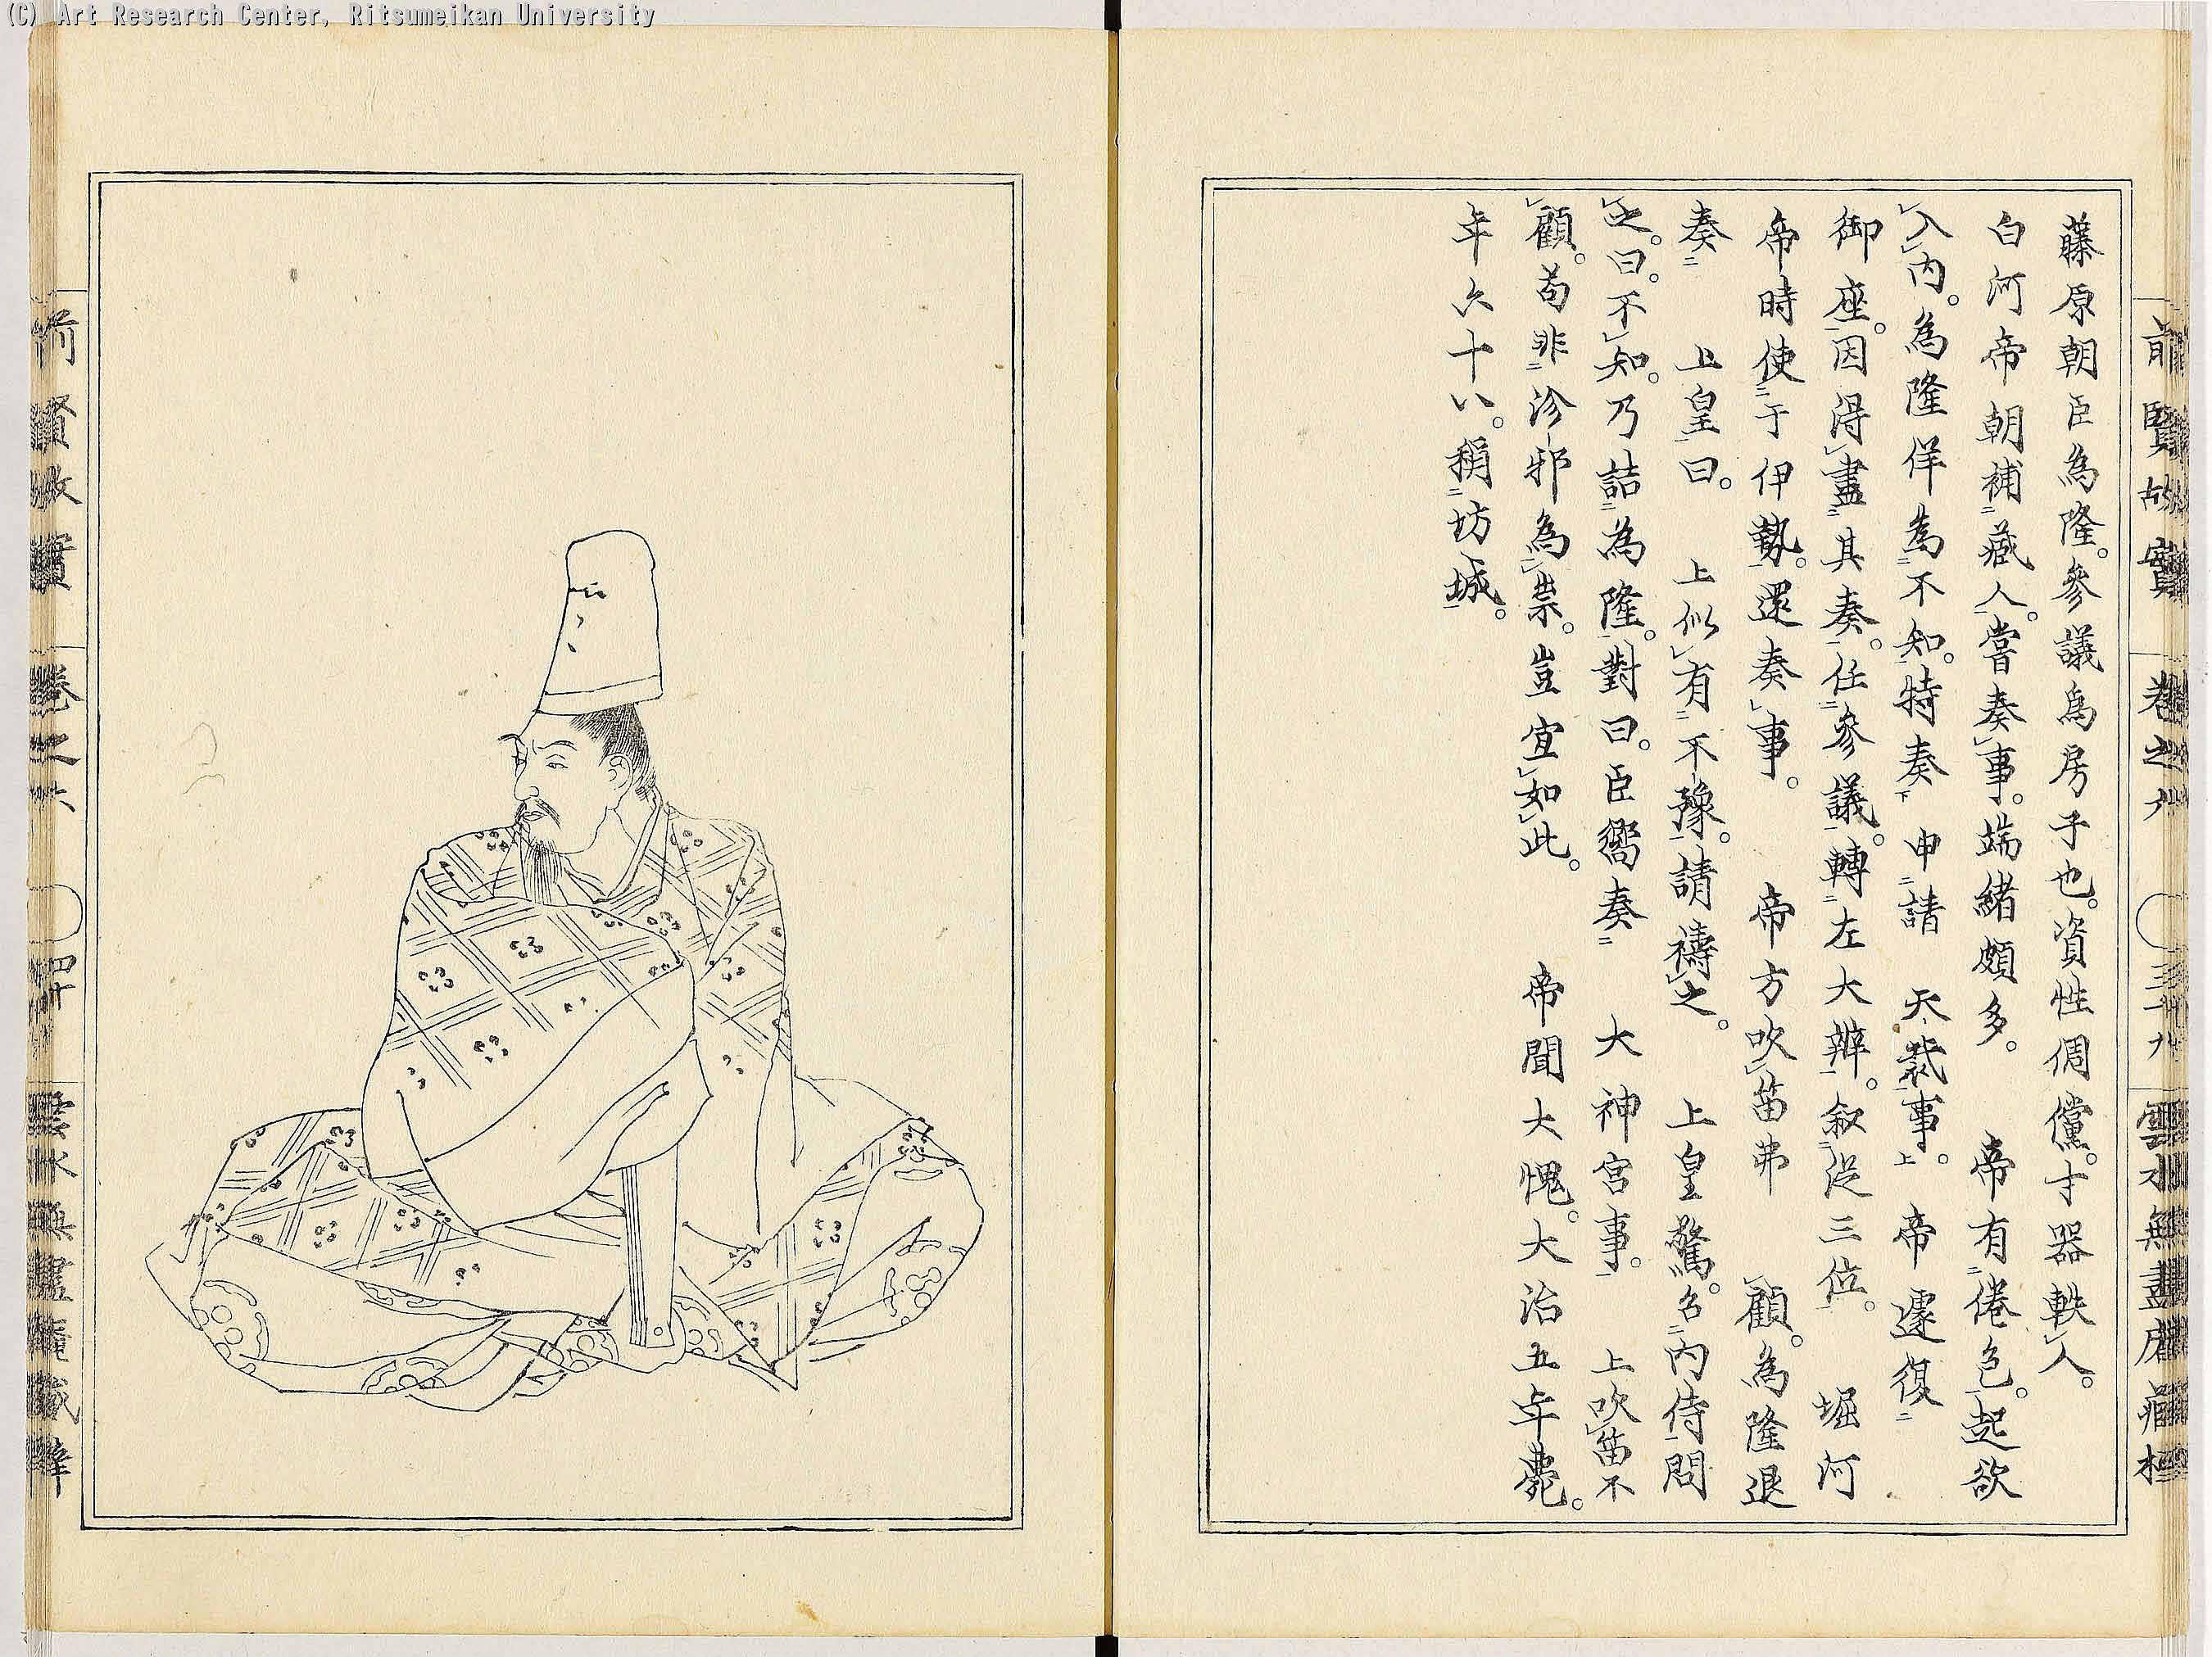 (C) Art Research Center, Ritsumeikan University
前賢故實 卷之六 三十九 雲水無盡庵藏梓
藤原朝臣為隆。參議爲房子也。資性倜儻。才器軼人。
白河帝朝補藏人。嘗奏事。端緒頗多。 帝有倦色。起欲
入內。為隆佯為不知。特奏 申請 天裁事。 帝遽復
御座。因得盡其奏。任參議。轉左大辨。叙從三位。 堀河
帝時使于伊勢。還奏事。 帝方吹笛弗 顧。為隆退
奏 上皇曰。 上似有不豫。請禱之。 上皇驚。召內侍問
之。曰。不知。乃詰為隆。對曰。臣嚮奏 大神宮事。 上吹笛不
顧。苟非沴邪為祟。豈宜如此。 帝聞大愧。大治五年薨。
年六十八。稱坊城。
前賢故實 卷之六 四十 雲水無盡庵藏梓